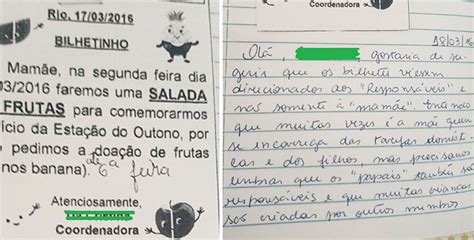 Rio, 17/03/2016
BILHETINHO
Mamãe, na segunda feira dia
03/2016 faremos uma SALADA
FRUTAS para comemorarmos
ício da Estação do Outono, por
pedimos a doação de frutas
nos banana). até 6ª feira
Atenciosamente,
Coordenadora
Coordenadora
18/03/16
Olá, , gostaria de su-
gerir que os bilhetes viessem
direcionados aos "Responsáveis" e
não somente à "mamãe". Sei
que muitas vezes é a mãe quem
se encarrega das tarefas domésti-
cas e dos filhos, mas precisamos
lembrar que os "papais" também são
responsáveis e que muitas crianças
são criadas por outros membros